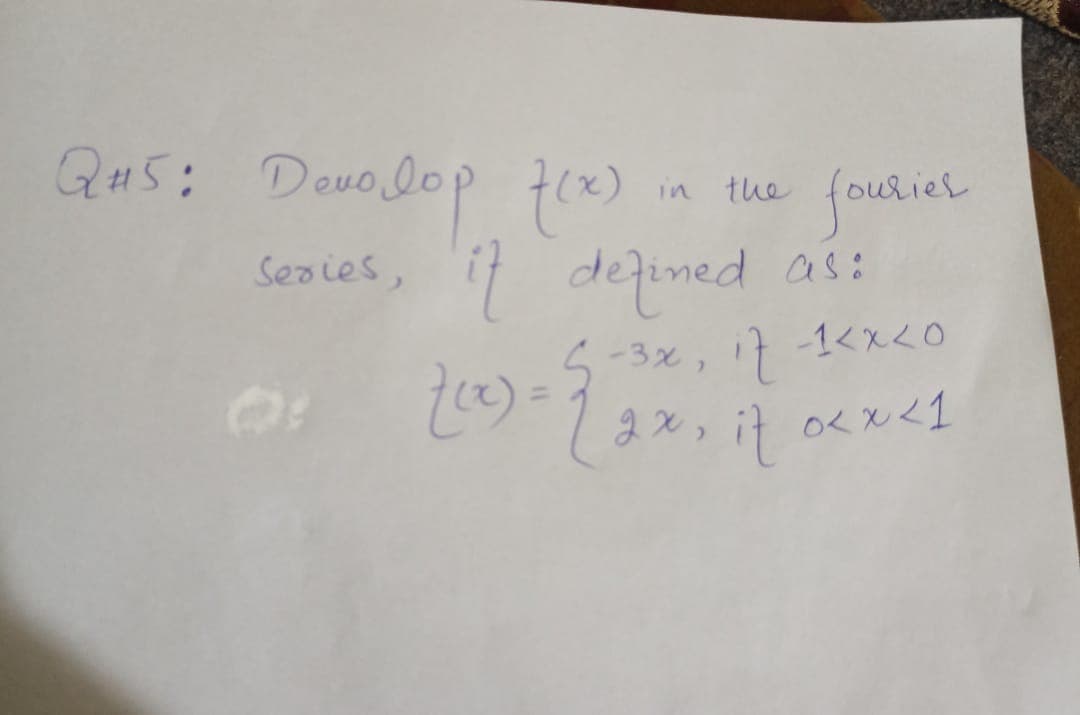 Q#5: Develop f(x) in the fourier
series, if defined as:
f(x) = { -3x, if -1<x<0
2x, if 0<x<1